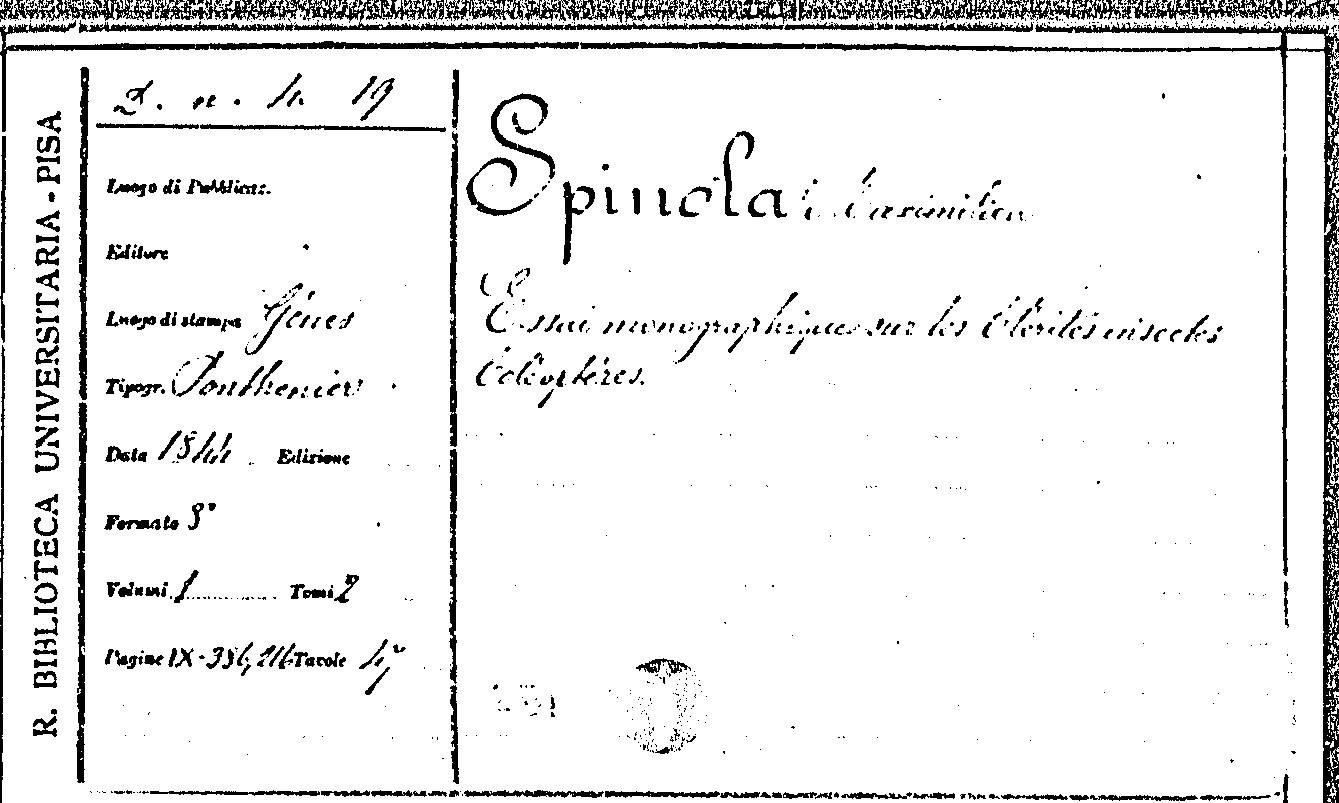 R. BIBLIOTECA UNIVERSITARIA - PISA
2. n. 4. 19
Luogo di Pubblicaz.
Editore
Luogo di stampa Gênes
Tipogr. Ponthenier
Data 1844 Edizione
Formato 8°
Volumi 1 Tomi 2
Pagine IX-386, 216 Tavole 47
Spinola Maximilien
Essai monographique sur les Clérites insectes
Coléoptères.